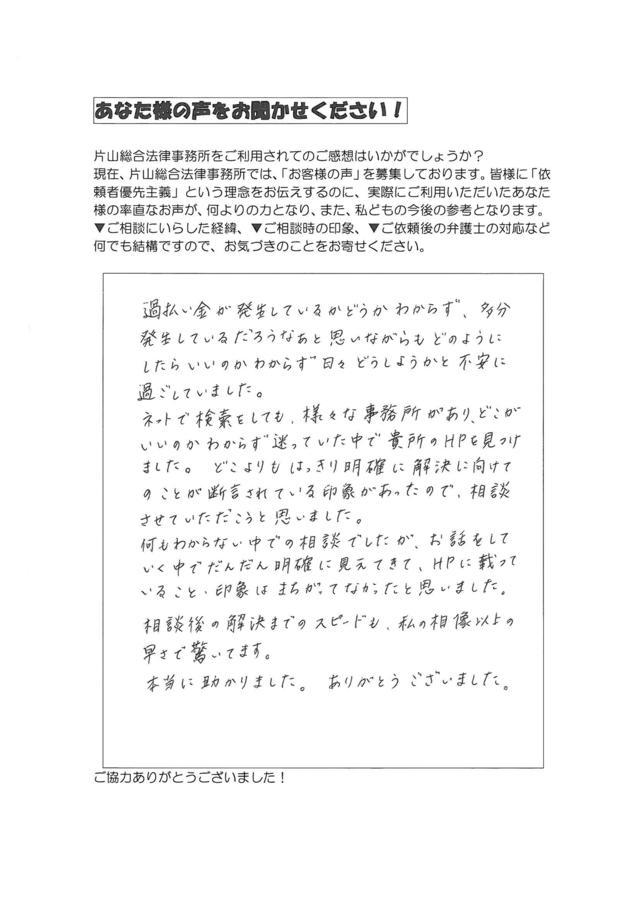 あなた様の声をお聞かせください！
片山総合法律事務所をご利用されてのご感想はいかがでしょうか？
現在、片山総合法律事務所では、「お客様の声」を募集しております。皆様に「依
頼者優先主義」という理念をお伝えするのに、実際にご利用いただいたあなた
様の率直なお声が、何よりの力となり、また、私どもの今後の参考となります。
▼ご相談にいらした経緯、▼ご相談時の印象、▼ご依頼後の弁護士の対応など
何でも結構ですので、お気づきのことをお寄せください。
過払い金が発生しているかどうかわからず、多分
発生しているだろうなぁと思いながらもどのように
したらいいのかわからず日々どうしようかと不安に
過ごしていました。
ネットで検索をしても、様々な事務所があり、どこが
いいのかわからず迷っていた中で貴所のHPを見つけ
ました。 どこよりもはっきり明確に解決に向けて
のことが断言されている印象があったので、相談
させていただこうと思いました。
何もわからない中での相談でしたが、お話をして
いく中でだんだん明確に見えてきて、HPに載って
いること・印象はまちがってなかったと思いました。
相談後の解決までのスピードも、私の相像以上の
早さで驚いてます。
本当に助かりました。 ありがとうございました。
ご協力ありがとうございました！